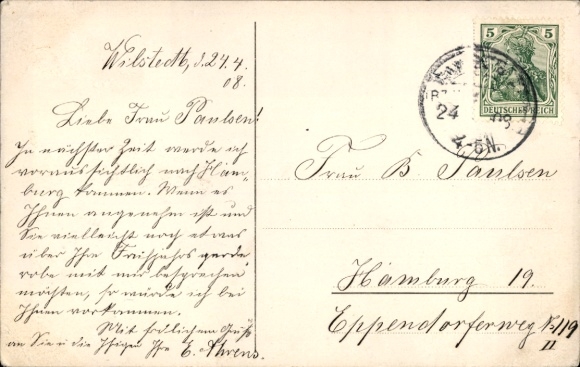 Wilstedt, d. 24.4.
08.
Liebe Frau Paulsen!
In nächster Zeit werde ich
voraussichtlich nach Ham-
burg kommen. Wenn es
Ihnen angenehm ist und
Sie vielleicht noch etwas
über Ihre Frühjahrsgarde,
robe mit mir besprechen
möchten, so würde ich bei
Ihnen vorkommen.
Mit frdlichem Gruß
an Sie u die Ihrigen Ihre E. Ahrens.
5 5
DEUTSCHES REICH
24 08
4-5N.
Frau B Paulsen
Hamburg 19.
Eppendorferweg No 119
II